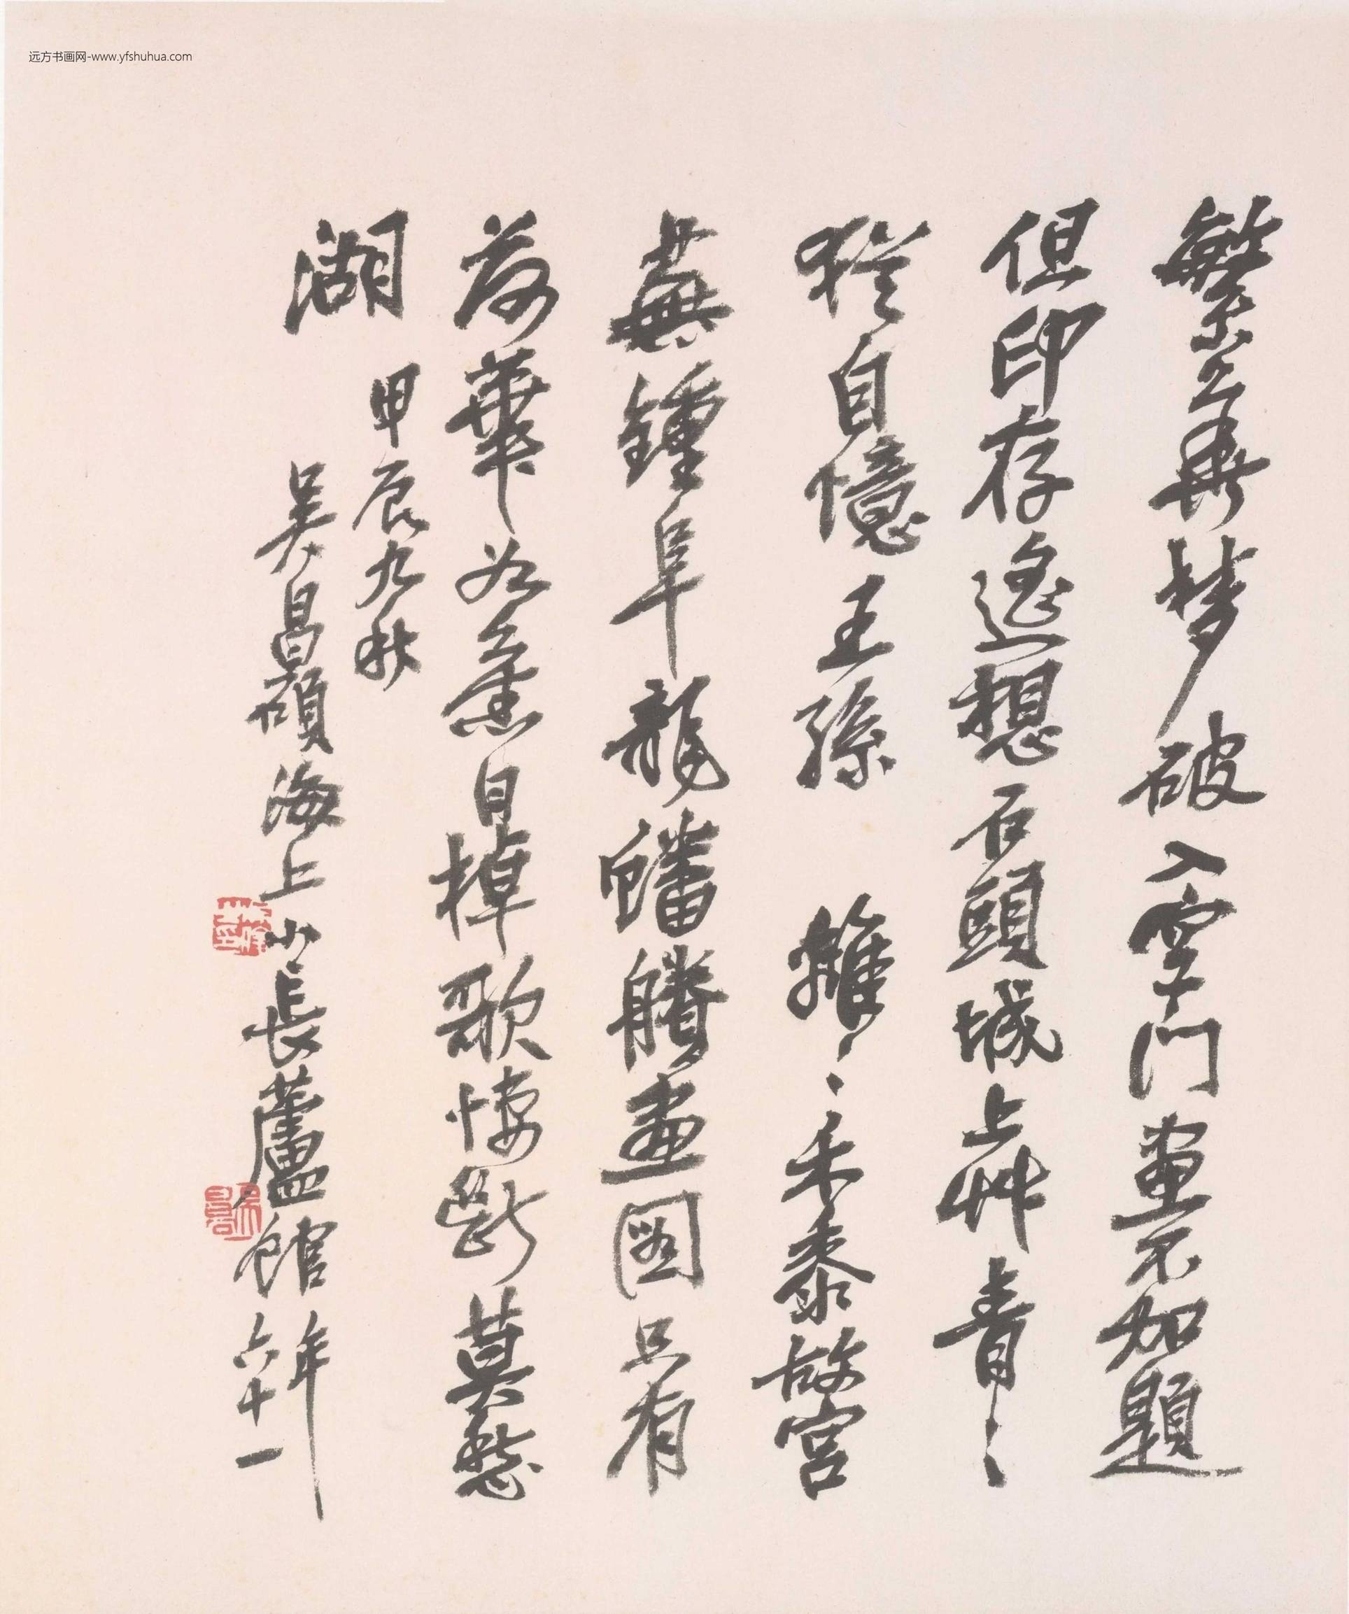 远方书画网-www.yfshuhua.com
繁華夢破入空門畫不加題
但印存遙想石頭城上艸青〻
猶自憶王孫 離〻禾黍故宮
蕪鍾阜龍蟠賸畫圖只有
荷華如舊日棹歌悽斷莫愁
湖
甲辰九秋
吳昌碩海上小長蘆館
年六十一